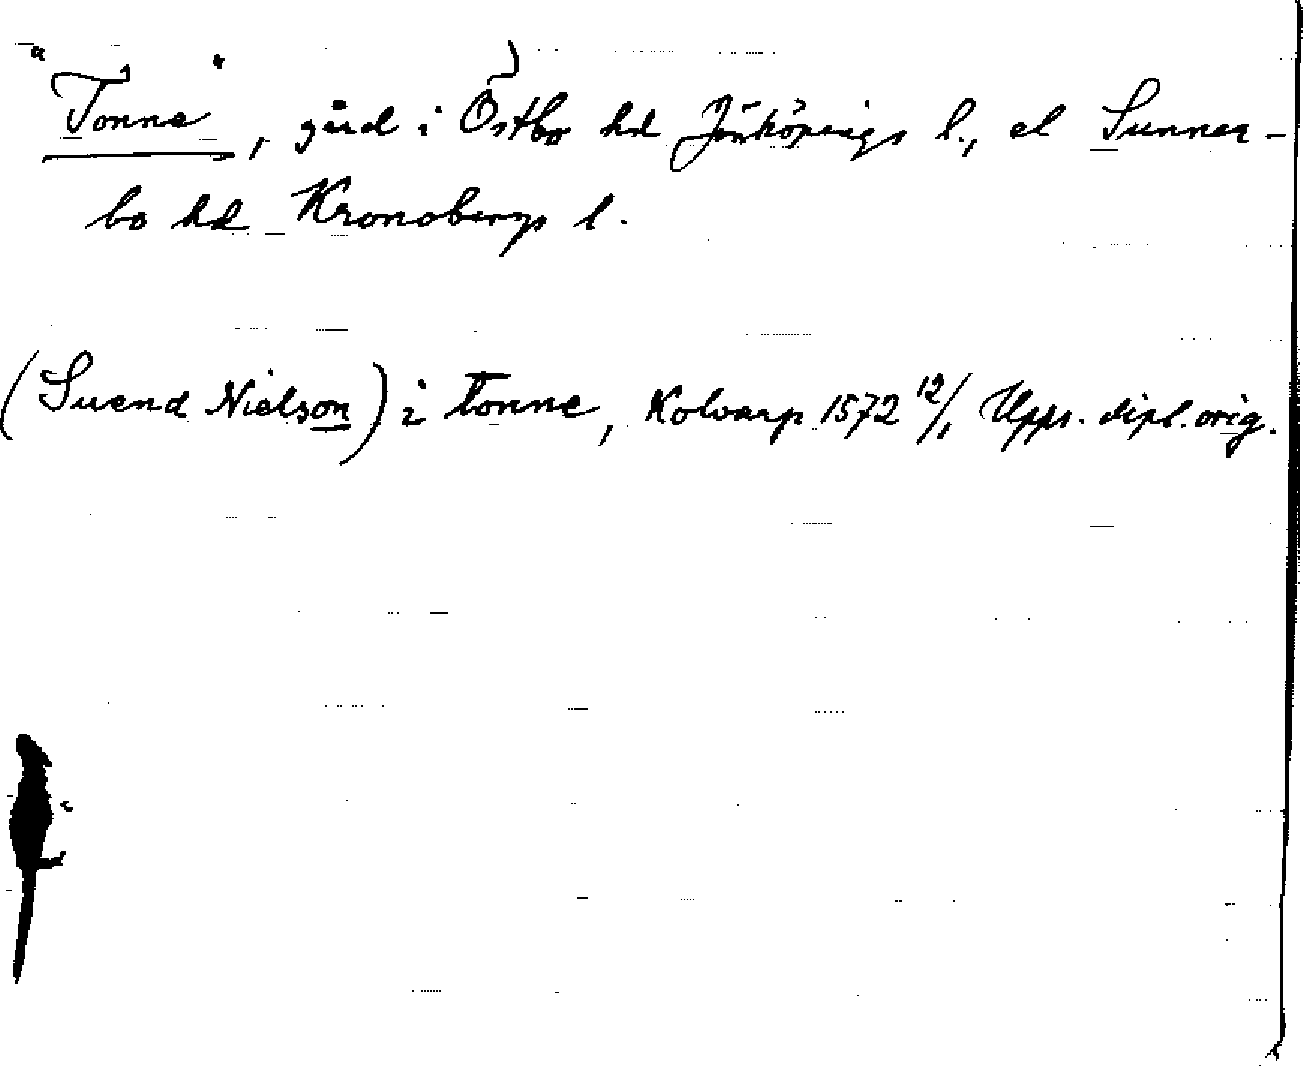 "Tonne", gård i Östbo hd Jönköpings l., el Sunner-
bo hd Kronobergs l.
(Suend Nielson) i tonne, Kolvarp 1572 12/1 Upps. dipl. orig.